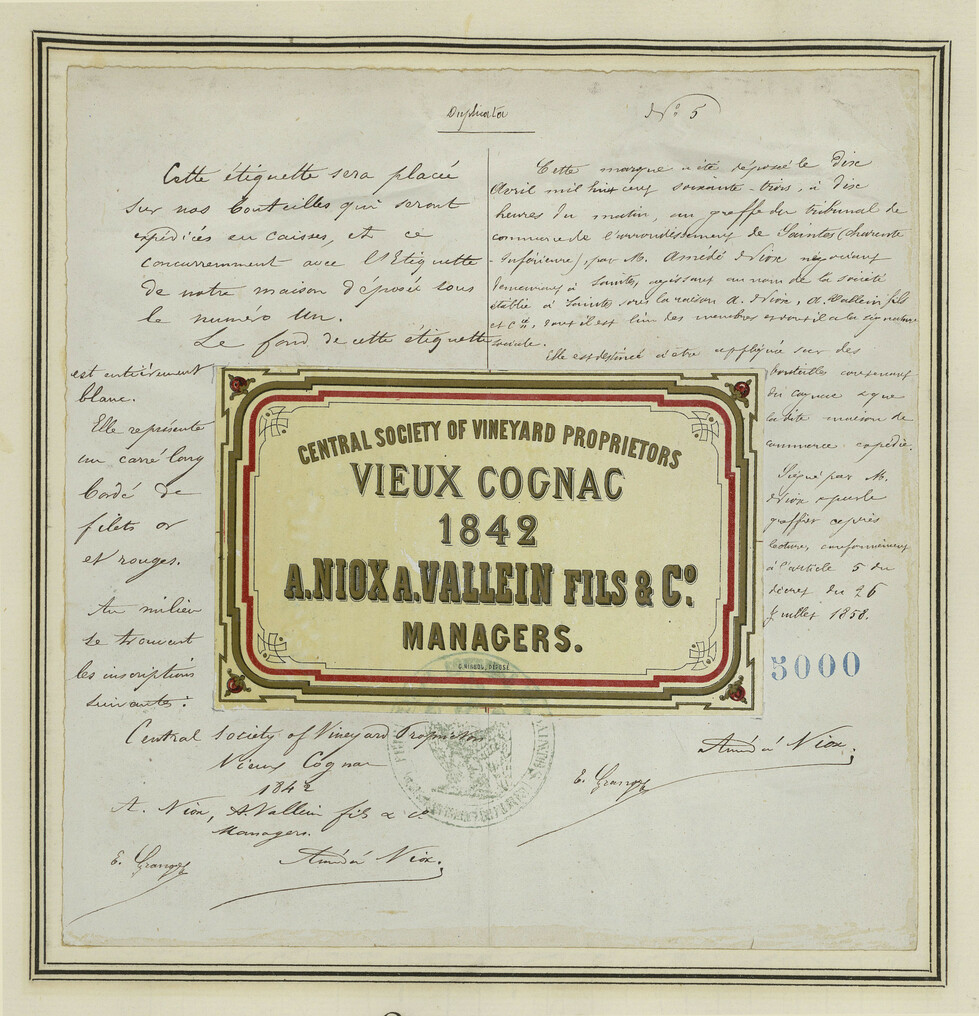 Duplicata
N° 5
Cette étiquette sera placée
sur nos bouteilles qui seront
expédiées en caisses, et ce
concurremment avec l'Etiquette
de notre maison déposée sous
le numéro Un.
Le fond de cette étiquette
est entièrement
blanc.
Elle représente
un carré long
bordé de
filets or
et rouges.
Au milieu
se trouvent
les inscriptions
suivantes :
Central Society of Vineyard Proprietors
Vieux Cognac
1842
A. Niox, A. Vallein fils & Cº
Managers.
E. Granges
Amédé Niox
Cette marque a été déposée le Dix
Avril mil huit cent soixante-trois, à dix
heures du matin, au greffe du tribunal de
commerce de l'arrondissement de Saintes (Charente
Inférieure), par M. Amédé Niox négociant
demeurant à Saintes, agissant au nom de la société
établie à Saintes sous la raison A. Niox, A. Vallein fils
et Cie, dont il est l'un des membres et dont il a la signature
sociale.
Elle est destinée à être appliquée sur des
bouteilles contenant
du cognac que
la dite maison de
commerce expédie.
Signé par M.
Niox et par le
greffier après
lecture, conformément
à l'article 5 du
décret du 26
Juillet 1858.
5000
Amédé Niox
E. Granges
CENTRAL SOCIETY OF VINEYARD PROPRIETORS
VIEUX COGNAC
1842
A. NIOX A. VALLEIN FILS & Cº.
MANAGERS.